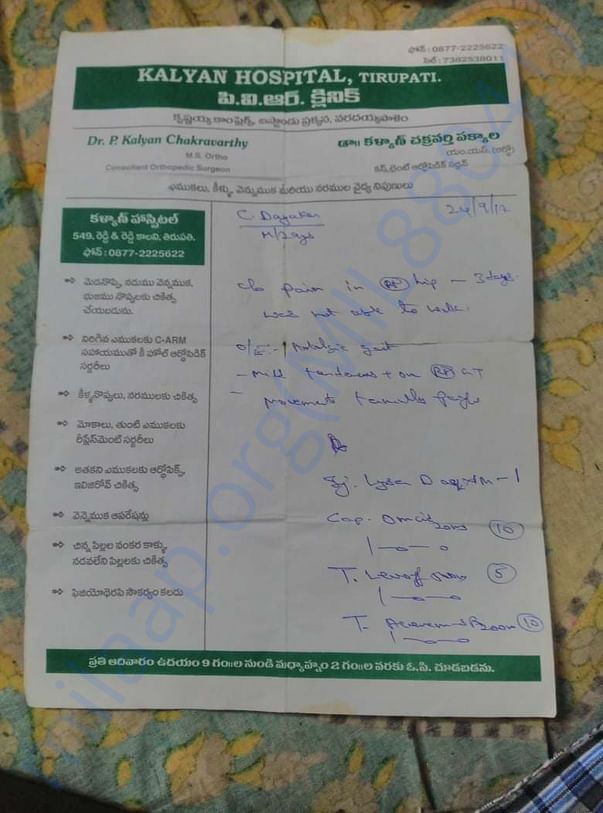 ఫోన్ : 0877-2225622
సెల్ : 7382538011
KALYAN HOSPITAL, TIRUPATI.
పి.వి.ఆర్. క్లినిక్
కృష్ణయ్య కాంప్లెక్స్, బస్టాండు ప్రక్కన, వరదయ్యపాళెం
Dr. P. Kalyan Chakravarthy
M.S. Ortho
Consultant Orthopedic Surgeon
డా॥ కళ్యాణ్ చక్రవర్తి పక్కాల
యం.యస్. (ఆర్థో)
కన్సల్టెంట్ ఆర్థోపెడిక్ సర్జన్
ఎముకలు, కీళ్ళు, వెన్నుముక మరియు నరముల వైద్య నిపుణులు
కళ్యాణ్ హాస్పిటల్
549, రెడ్డి & రెడ్డి కాలని, తిరుపతి.
ఫోన్ : 0877-2225622
మెడనొప్పి, నడుము వెన్నుముక,
భుజము నొప్పులకు చికిత్స
చేయబడును.
విరిగిన ఎముకలకు C-ARM
సహాయముతో కీ హోల్ ఆర్థోపెడిక్
సర్జరీలు
కీళ్ళనొప్పులు, నరములకు చికిత్స
మోకాలు, తుంటి ఎముకలకు
రీప్లేస్‌మెంట్ సర్జరీలు
అతకని ఎముకలకు ఆర్థోఫిక్స్,
ఇలిజిరోవ్ చికిత్స
వెన్నెముక ఆపరేషన్లు
చిన్న పిల్లల వంకర కాళ్ళు,
నడవలేని పిల్లలకు చికిత్స
ఫిజియోథెరపి సౌకర్యం కలదు
C. Dayakar
24/9/17
c/o pain in Rt hip - 3 days.
was not able to walk.
o/E :- Antalgic gait
- Mild tenderness + on Rt GT
- movements
Rx
Cap.
10
1-0-0
T.
5
1-0-0
T.
10
1-0-0
ప్రతి ఆదివారం ఉదయం 9 గం॥ల నుండి మధ్యాహ్నం 2 గం॥ల వరకు ఓ.పి. చూడబడను.